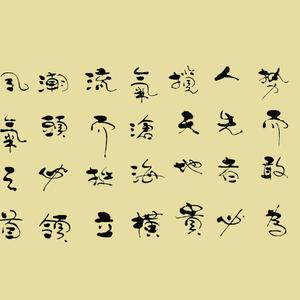 勢而敢為
人先者必
攬天地貴
氣滄海橫
流而挺立
潮頭必領
風氣之首